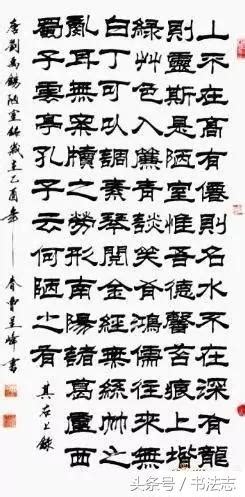 山不在高有僊則名水不在深有龍
則靈斯是陋室惟吾德馨苔痕上堦
綠艸色入簾青談笑有鴻儒往來無
白丁可以調素琴閱金經無絲竹之
亂耳無案牘之勞形南陽諸葛廬西
蜀子雲亭孔子云何陋之有
唐劉禹錫陋室銘歲在乙酉春曹書
头条号 / 书法志